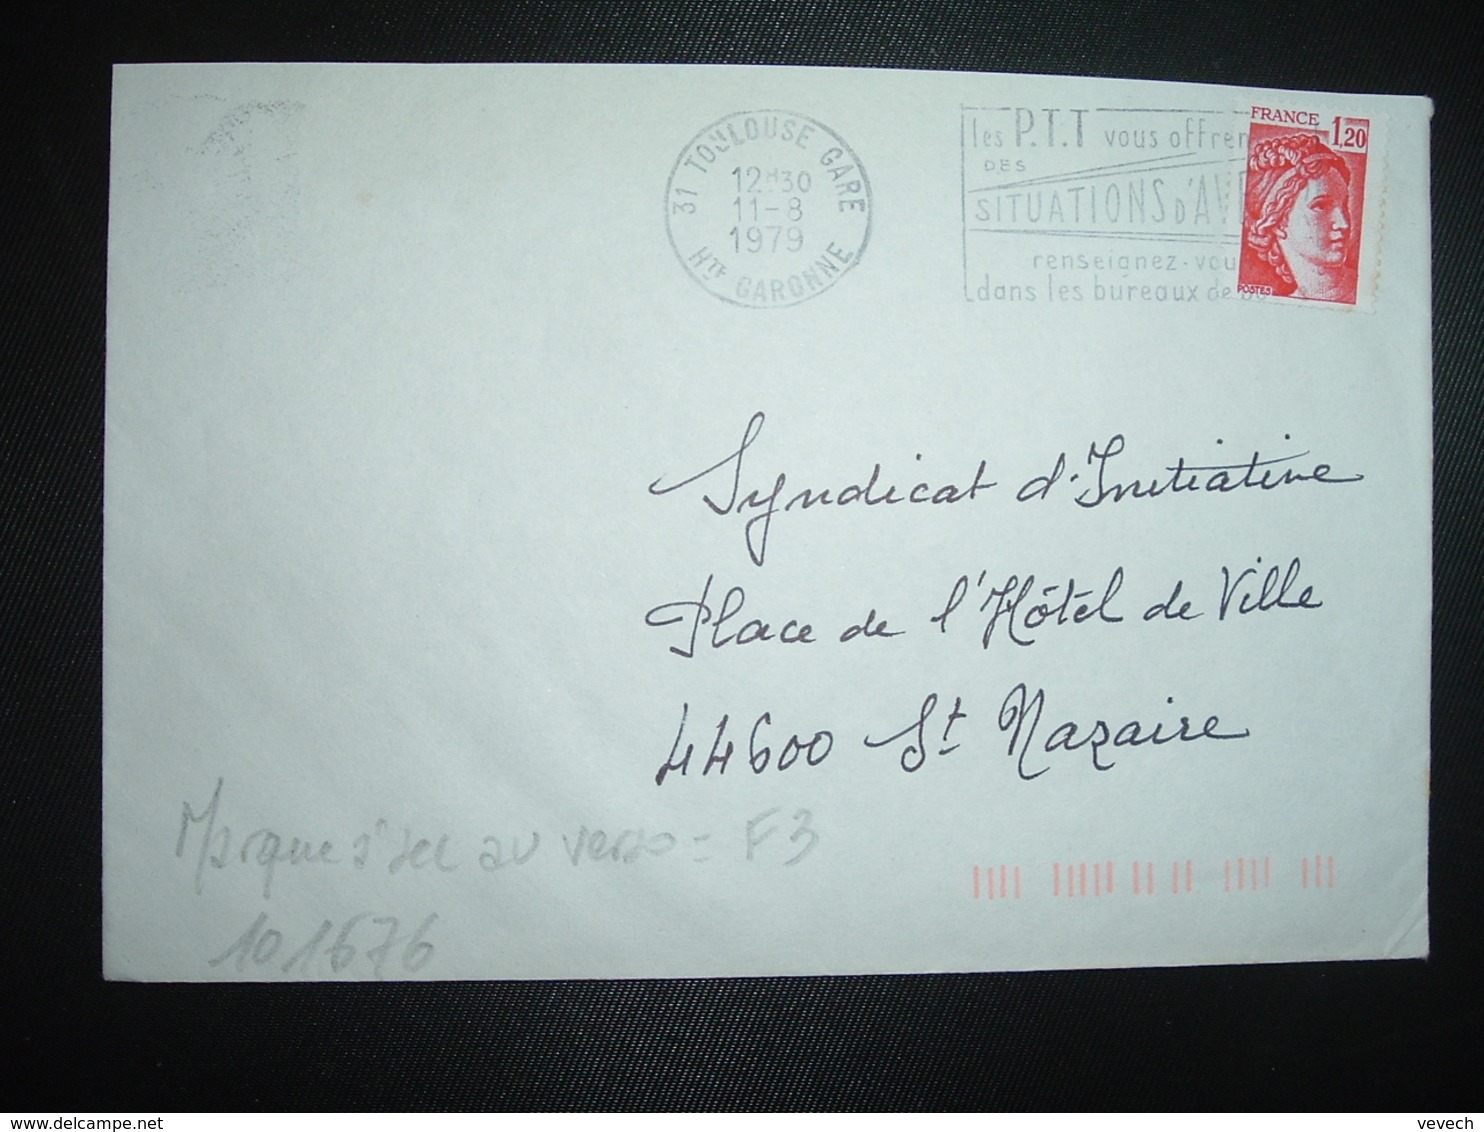 31 TOULOUSE GARE
12H30
11-8
1979
HTE GARONNE
les P.T.T vous offren
DES
SITUATIONS D'AV
renseignez-vou
dans les bureaux de
FRANCE
1,20
POSTES
Syndicat d'Initiative
Place de l'Hôtel de Ville
44600 St Nazaire
Marque à sec au verso = F3
101676
delcampe.net
vevech